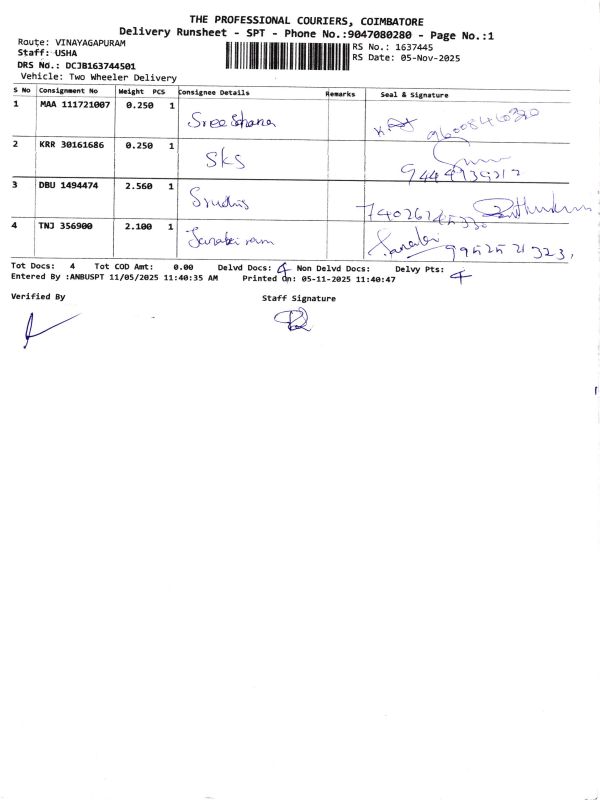 THE PROFESSIONAL COURIERS, COIMBATORE
Delivery Runsheet - SPT - Phone No.:9047080280 - Page No.:1
Route: VINAYAGAPURAM
Staff: USHA
DRS No.: DCJB163744501
Vehicle: Two Wheeler Delivery
RS No.: 1637445
RS Date: 05-Nov-2025
S No Consignment No Weight PCS Consignee Details Remarks Seal & Signature
1 MAA 111721007 0.250 1 9600846320
2 KRR 30161686 0.250 1 SKS
3 DBU 1494474 2.560 1
4 TNJ 356900 2.100 1 Janaki ram Janaki 9952521323
Tot Docs: 4 Tot COD Amt: 0.00 Delvd Docs: 4 Non Delvd Docs: Delvy Pts: 4
Entered By :ANBUSPT 11/05/2025 11:40:35 AM Printed On: 05-11-2025 11:40:47
Verified By Staff Signature